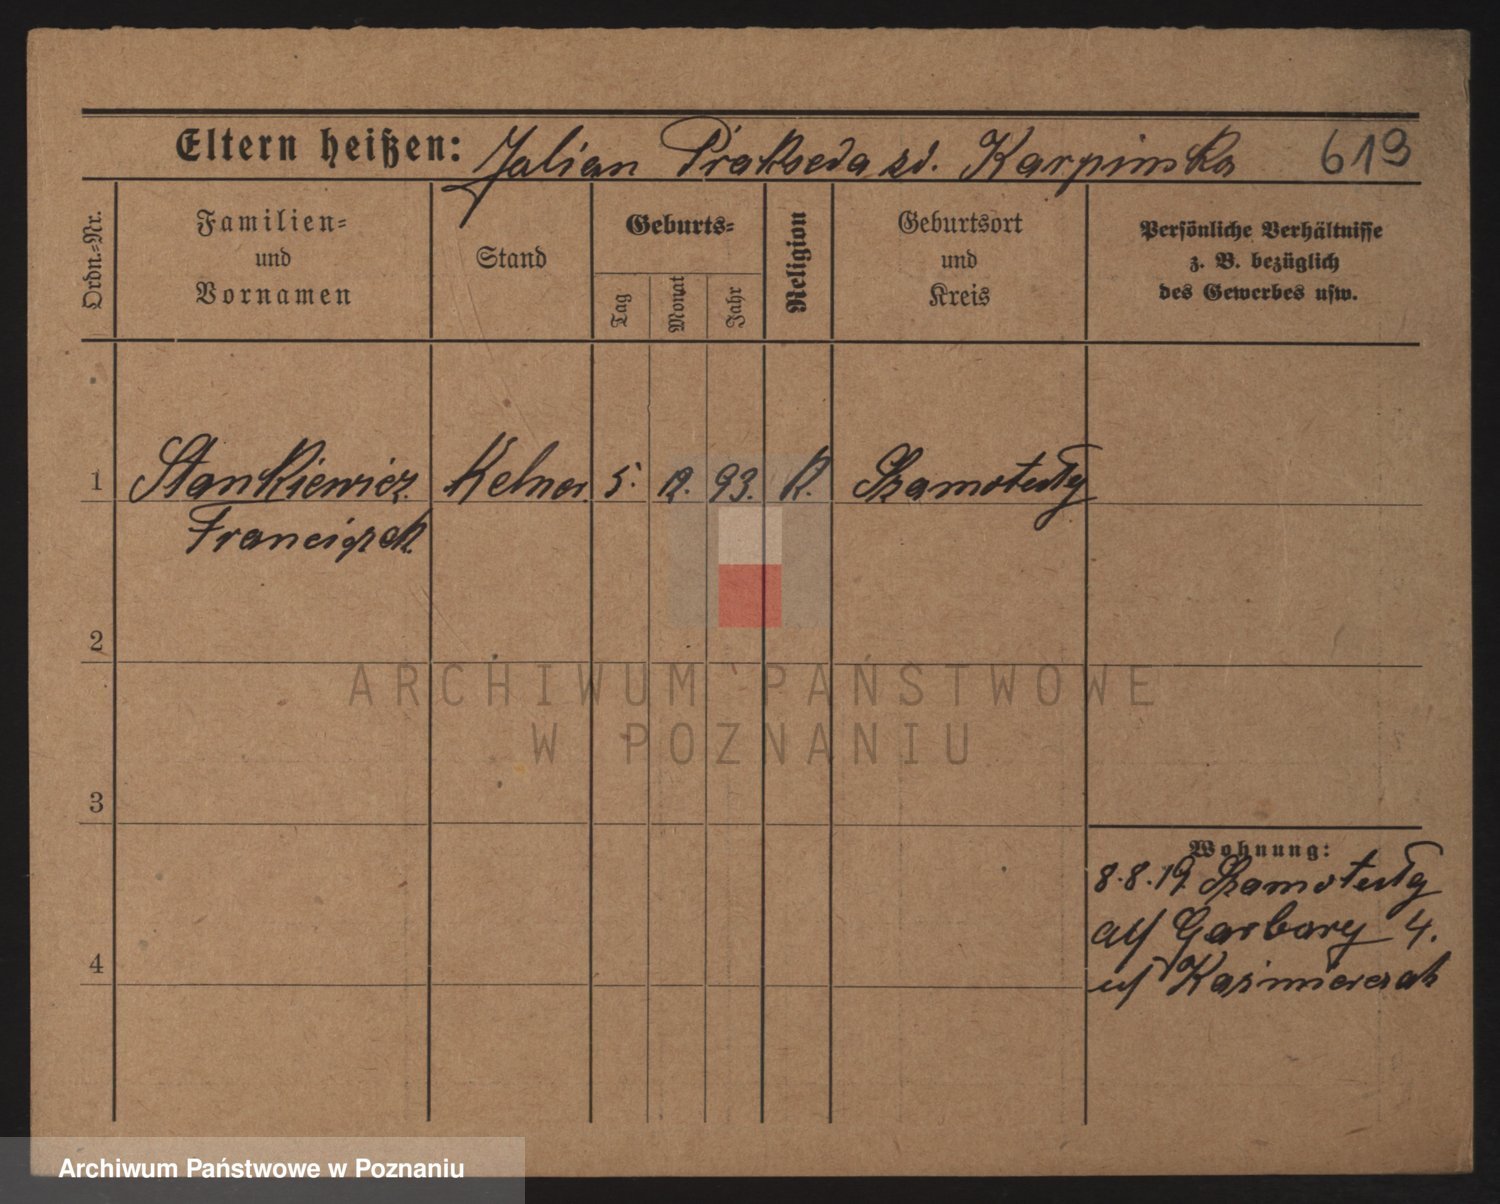 Eltern heißen: Julian Prakseda zd. Karpinska 619
Ordn.=Nr.
Familien=
und
Vornamen
Stand
Geburts=
Tag
Monat
Jahr
Religion
Geburtsort
und
Kreis
Persönliche Verhältnisse
z. B. bezüglich
des Gewerbes usw.
1 Stankiewicz Kelner 5. 12. 93. K. Szamotuły
Franciszek
2
ARCHIWUM PAŃSTWOWE
W POZNANIU
3
Wohnung:
8.8.19 Szamotuły
Garbary 4.
4
Kaźmierczak
Archiwum Państwowe w Poznaniu